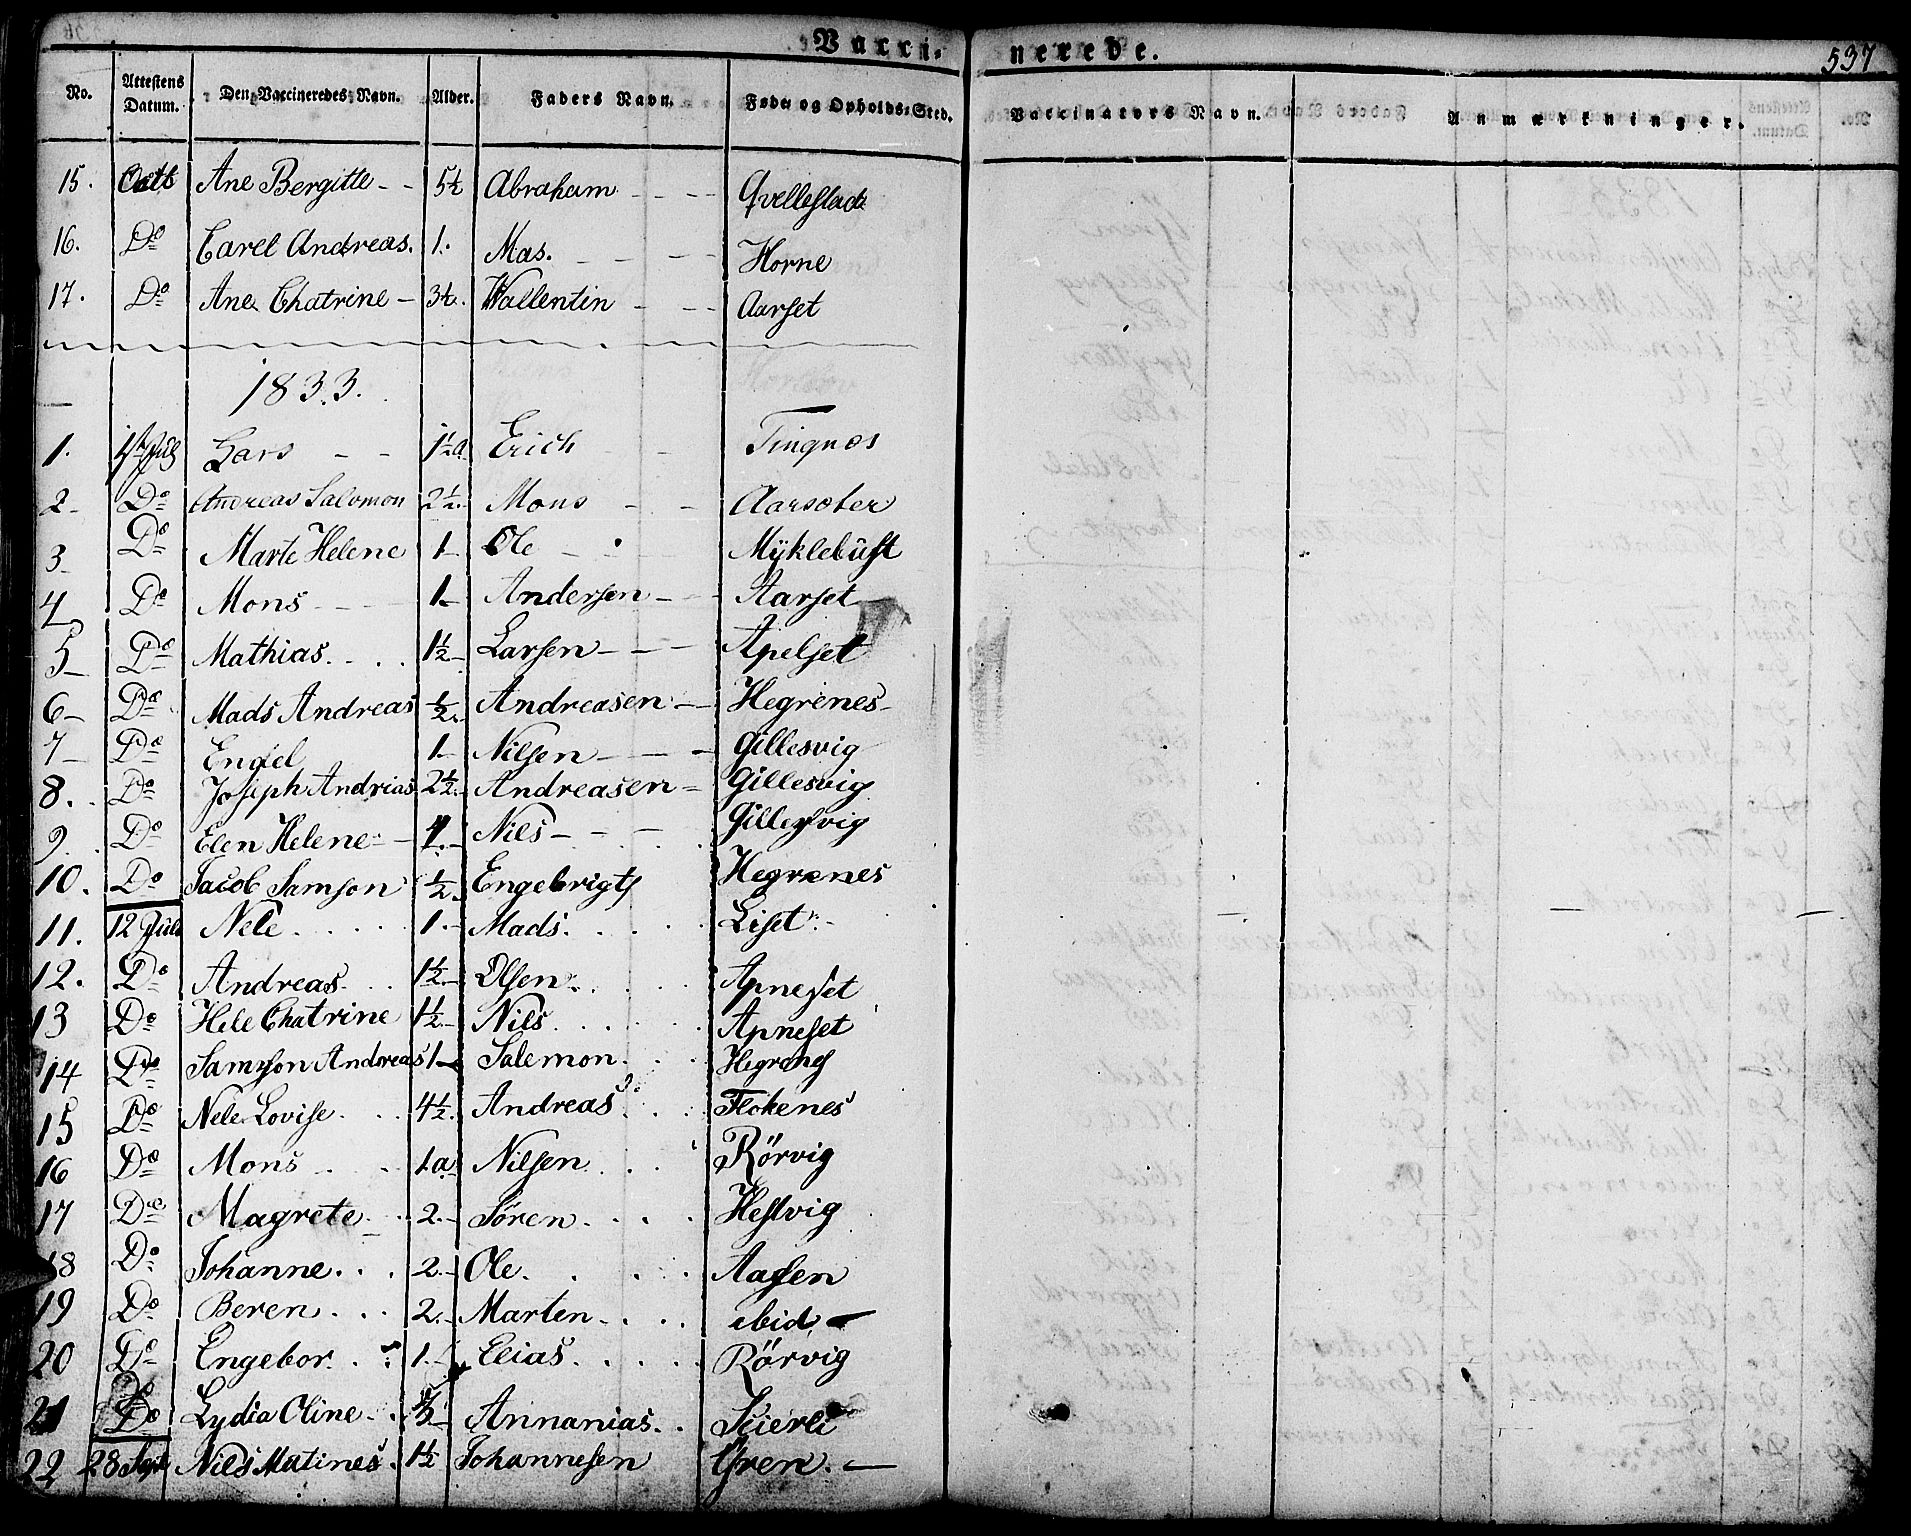 Vacci- nerede. 537
No. Attestens Datum. Den Vaccineredes Navn. Alder. Faders Navn. Føde og Opholds-Sted. Vaccinators Navn. Anmærkninger.
15. Ane Bergitte - - 5½ Abraham - - - Qvellestad
16. Do Carel Andreas. 1. Mas. - - - Horne
17. Do Ane Chatrine - 3½. Wallentin - - - Aarset
1833.
1. 1ste Jul Lars - - 1½a Erich - - Tingnes
2- Do Andreas Salomon 2½. Mons - - Aarsæter
3- Do Marte Helene 1- Ole - - Mÿklebúst
4 Do Mons - - - 1- Andersen - - Aarset
5- Do Mathias. . . . 1½- Larsen - - - Apelset
6- Do Mads Andreas ½. Andreasen - - Hegrenes-
7- Do Engel 1- Nilsen - - - Gillesvig
8. Do Joseph Andrias 2½- Andreasen = Gillesvig
9. Do Elen Helene - - Nils - - - Gillesvig
10. Do Jacob Samson ½. Engebrigts Hegrenes
11. 12 Juli Nele . . . . . 1.- Mads. . . . . Liset.-
12. Do Andreas. . . 1½.- Olsen. . . . . Apneset
13 Do Hele Chatrine 1½- Nils . . . . . Apneset
14 Do Samson Andreas 1- Salemon. . . Hegrenes
15 Do Nele Lovise. . . 4½. Andreas. . . Flokenes
16 Do Mons . . . 1a Nilsen . . . Rörvig
17 Do Magrete . . 2.- Sören. . . . Hestvig
18 Do Johanne. . . 2.- Ole. . . . Aasen
19 Do Beren . . . 2.- Marten - . . . ibid. -
20 Do Engebor. . . 1.- Elias. . . . . Rörvig
21 Do Lydia Oline - . Annanias. . Seierli
22 28 Sept Nils Matines. 1½ Johannesen Gren. -